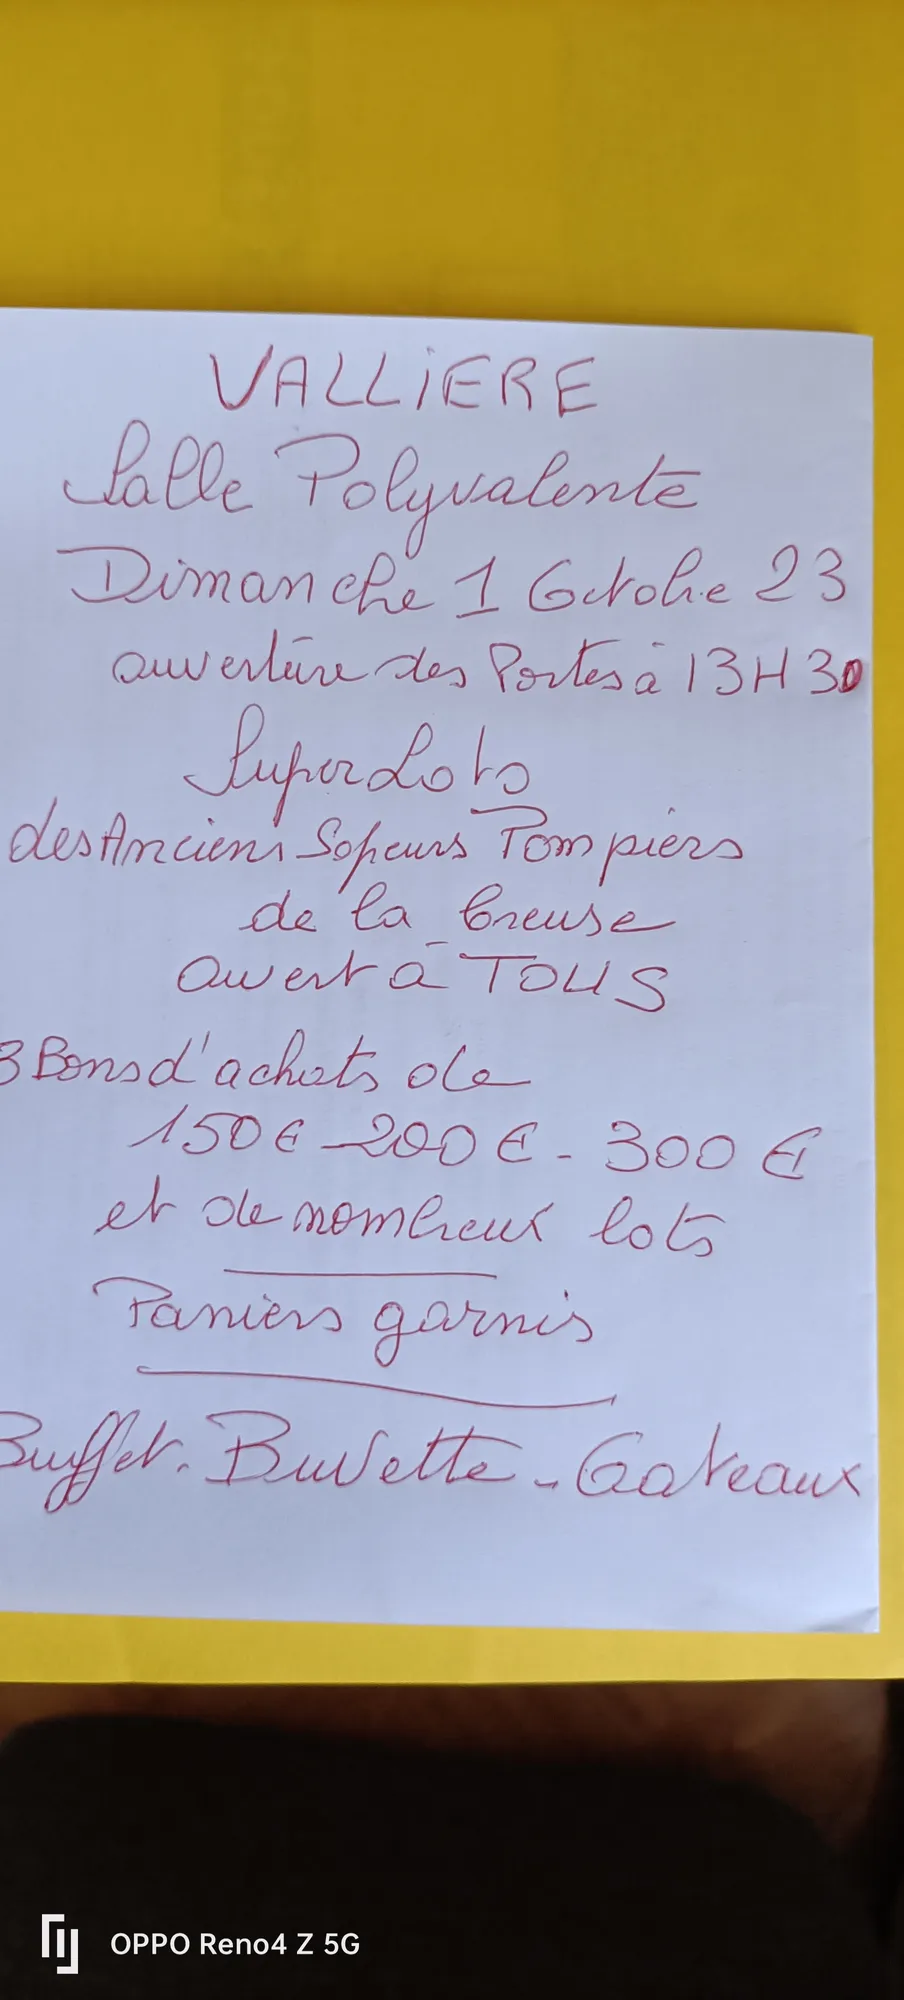 VALLiERE
Salle Polyvalente
Dimanche 1 Octobre 23
ouverture des Portes à 13H30
Super Lots
des Anciens Sapeurs Pompiers
de la Creuse
ouvert à TOUS
3 Bons d'achats de
150€ - 200€ - 300€
et de nombreux lots
Paniers garnis
Buffet - Buvette - Gateaux
OPPO Reno4 Z 5G